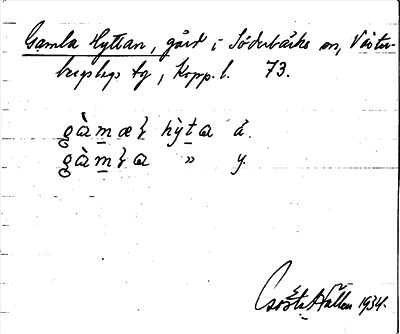 Gamla Hyttan, gård i Söderbärke sn, Väster-
bergslags tg, Kopp. l. 73.
gàmæɫ hỳta ä.
gàmɫa " y.
Gösta Hallen 1934.